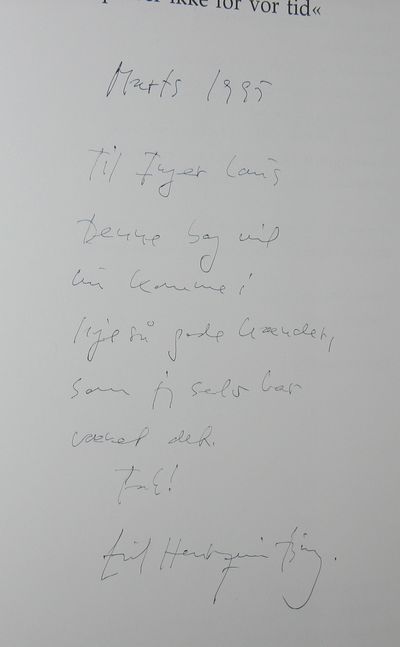 ikke for vor tid«
Marts 1995
Til Inger
Denne bog vil
nu komme i
lige så gode hænder,
som jeg selv har
været det.
Tak!